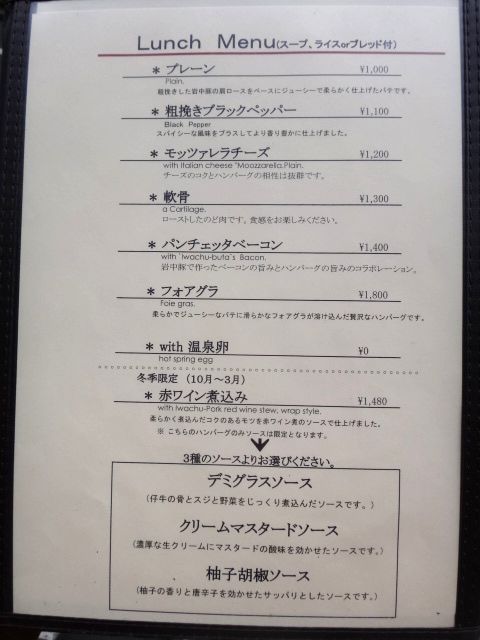 Lunch Menu(スープ、ライスorブレッド付)
* プレーン ¥1,000
Plain.
粗挽きした岩中豚の肩ロースをベースにジューシーで柔らかく仕上げたパテです。
* 粗挽きブラックペッパー ¥1,100
Black Pepper
スパイシーな風味をプラスしてより香り豊かに仕上げました。
* モッツァレラチーズ ¥1,200
with Italian cheese "Moozzarella.Plain.
チーズのコクとハンバーグの相性は抜群です。
* 軟骨 ¥1,300
a Cartilage.
ローストしたのど肉です。食感をお楽しみください。
* パンチェッタベーコン ¥1,400
with `Iwachu-buta`s Bacon.
岩中豚で作ったベーコンの旨みとハンバーグの旨みのコラボレーション。
* フォアグラ ¥1,800
Foie gras.
柔らかでジューシーなパテに滑らかなフォアグラが溶け込んだ贅沢なハンバーグです。
* with 温泉卵 ¥0
hot spring egg
冬季限定 (10月~3月)
* 赤ワイン煮込み ¥1,480
with Iwachu-Pork red wine stew, wrap style.
柔らかく煮込んだコクのあるモツを赤ワイン煮のソースで仕上ました。
※ こちらのハンバーグのみソースは限定となります。
3種のソースよりお選びください。
デミグラスソース
(仔牛の骨とスジと野菜をじっくり煮込んだソースです。)
クリームマスタードソース
(濃厚な生クリームにマスタードの酸味を効かせたソースです。)
柚子胡椒ソース
(柚子の香りと唐辛子を効かせたサッパリとしたソースです。)